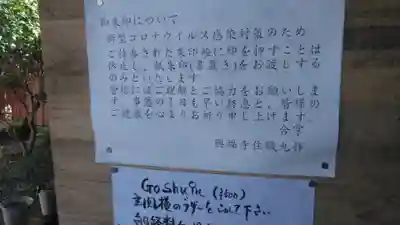 御朱印について
新型コロナウイルス感染対策のため
ご持参された朱印帳に印を押すことは
休止し、紙朱印(書置き)をお渡しする
のみといたします
皆様にはご理解とご協力をお願いしま
す 事態の1日も早い終息と、皆様の
ご健康を心よりお祈り申し上げます。
合掌
興福寺住職
Goshuin (¥500)
玄関横のブザーをならして下さい